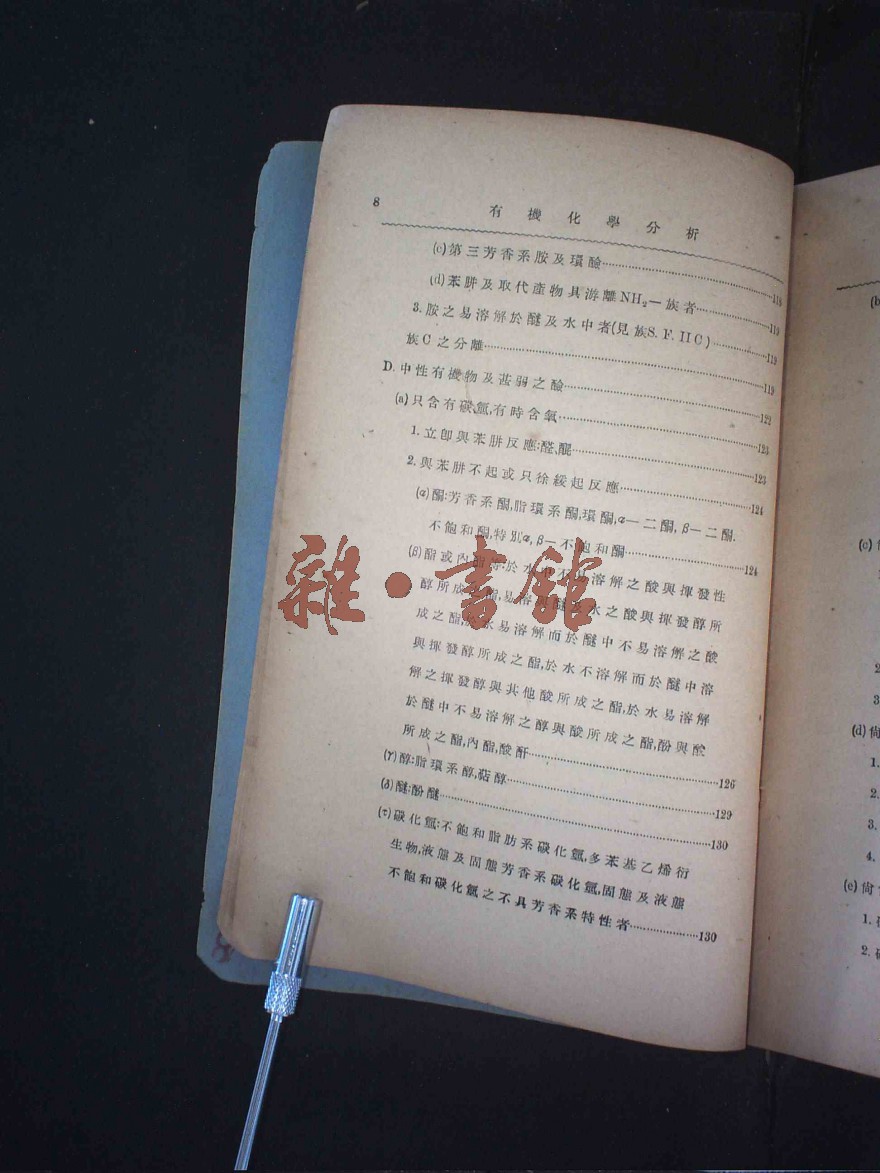 8
有機化學分析
(c)第三芳香系胺及環鹼……118
(d)苯肼及取代產物具游離NH₂—族者……119
3.胺之易溶解於醚及水中者(見族S. F. II C)……119
族C之分離……119
D.中性有機物及甚弱之鹼……122
(a)只含有碳,氫,有時含氧……123
1.立卽與苯肼反應:醛,醌……123
2.與苯肼不起或只徐緩起反應……124
(α)酮:芳香系酮,脂環系酮,環酮,α—二酮, β—二酮.
不飽和酮,特別α, β—不飽和酮……124
(β)酯或內酯等:於水中不易溶解之酸與揮發性
醇所成之酯,易溶於醚及水之酸與揮發醇所
成之酯,於水易溶解而於醚中不易溶解之酸
與揮發醇所成之酯,於水不溶解而於醚中溶
解之揮發醇與其他酸所成之酯,於水易溶解
於醚中不易溶解之醇與酸所成之酯,酚與酸
所成之酯,內酯,酸酐……126
(γ)醇:脂環系醇,萜醇……129
(δ)醚:酚醚……130
(τ)碳化氫:不飽和脂肪系碳化氫,多苯基乙烯衍
生物,液態及固態芳香系碳化氫,固態及液態
不飽和碳化氫之不具芳香系特性者……130
雜·書館
(b
(c)
2
3
(d)尙
1.
2.
3.
4.
(e)尙
1.
2.